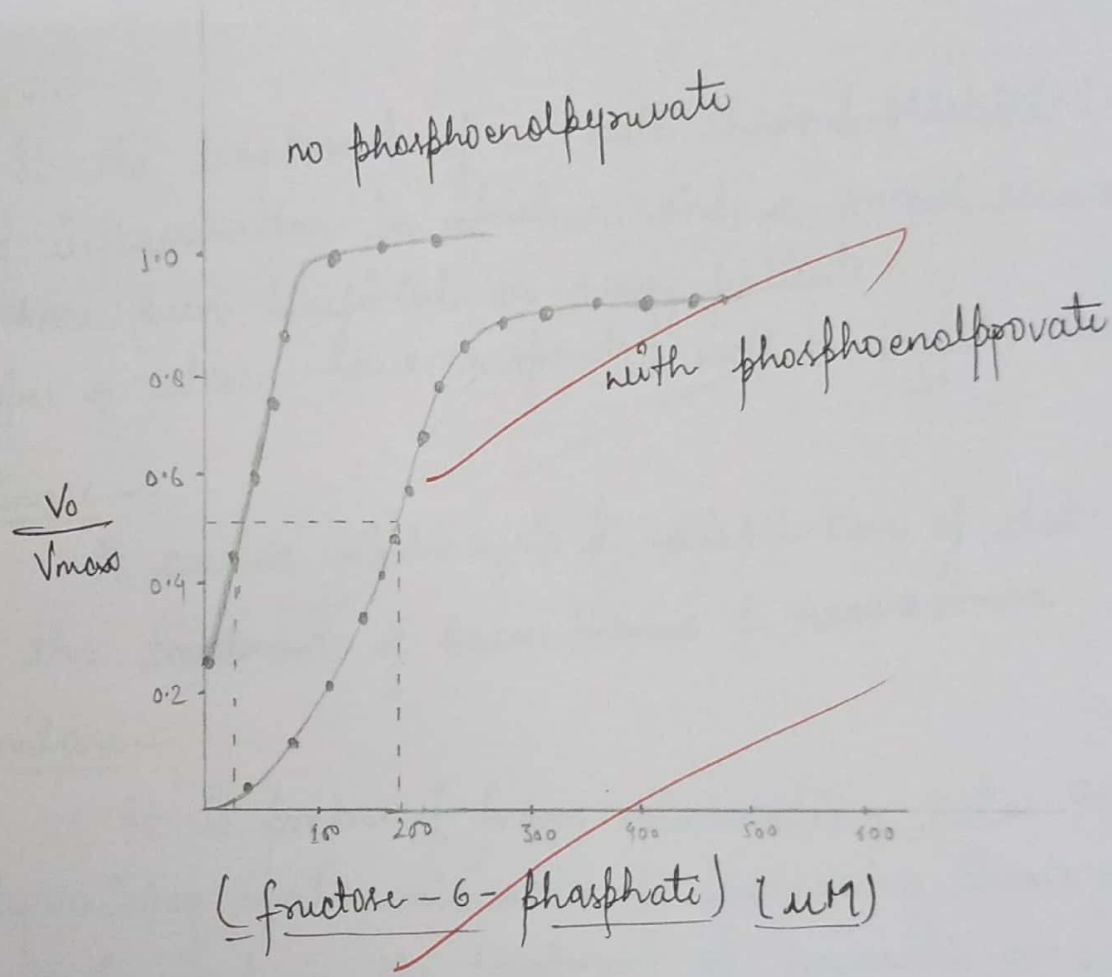 no phosphoenolpyruvate
1.0
with phosphoenolpyrovate
0.8
0.6
Vo
Vmax
0.4
0.2
100 200 300 400 500 600
(fructose-6-phasphate) (uM)